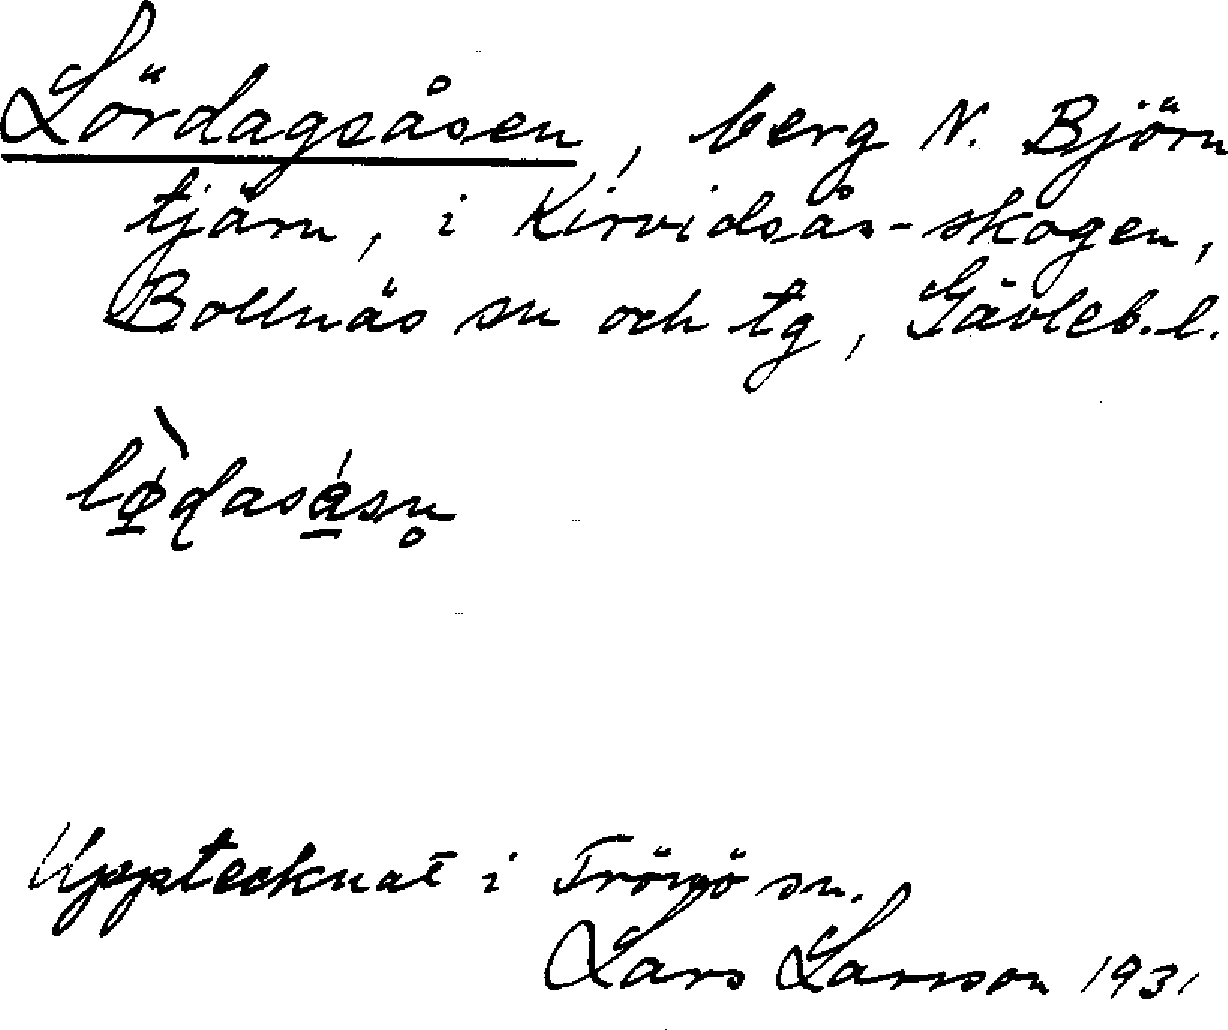 Lördagsåsen, berg N. Björn
tjärn, i Kirvidsås-skogen,
Bollnäs sn och tg, Gävleb.l.
Upptecknat i Trönö sn.
Lars Larsson 1931